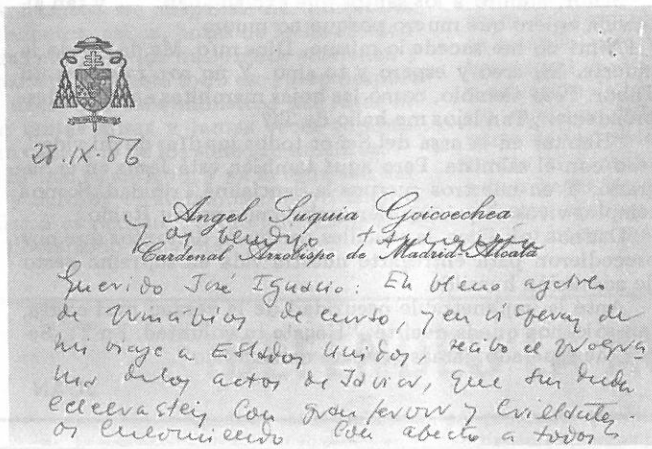 28.IX.86
Angel Suquía Goicoechea
y os bendigo +
Cardenal Arzobispo de Madrid-Alcalá
Querido José Ignacio: En pleno ajetreo
de primarios de curso, y en vísperas de
mi viaje a Estados Unidos, recibo el progra
ma de los actos de Javier, que sin duda
celebrasteis con gran fervor y brillantez.
os encomiendo con afecto a todos